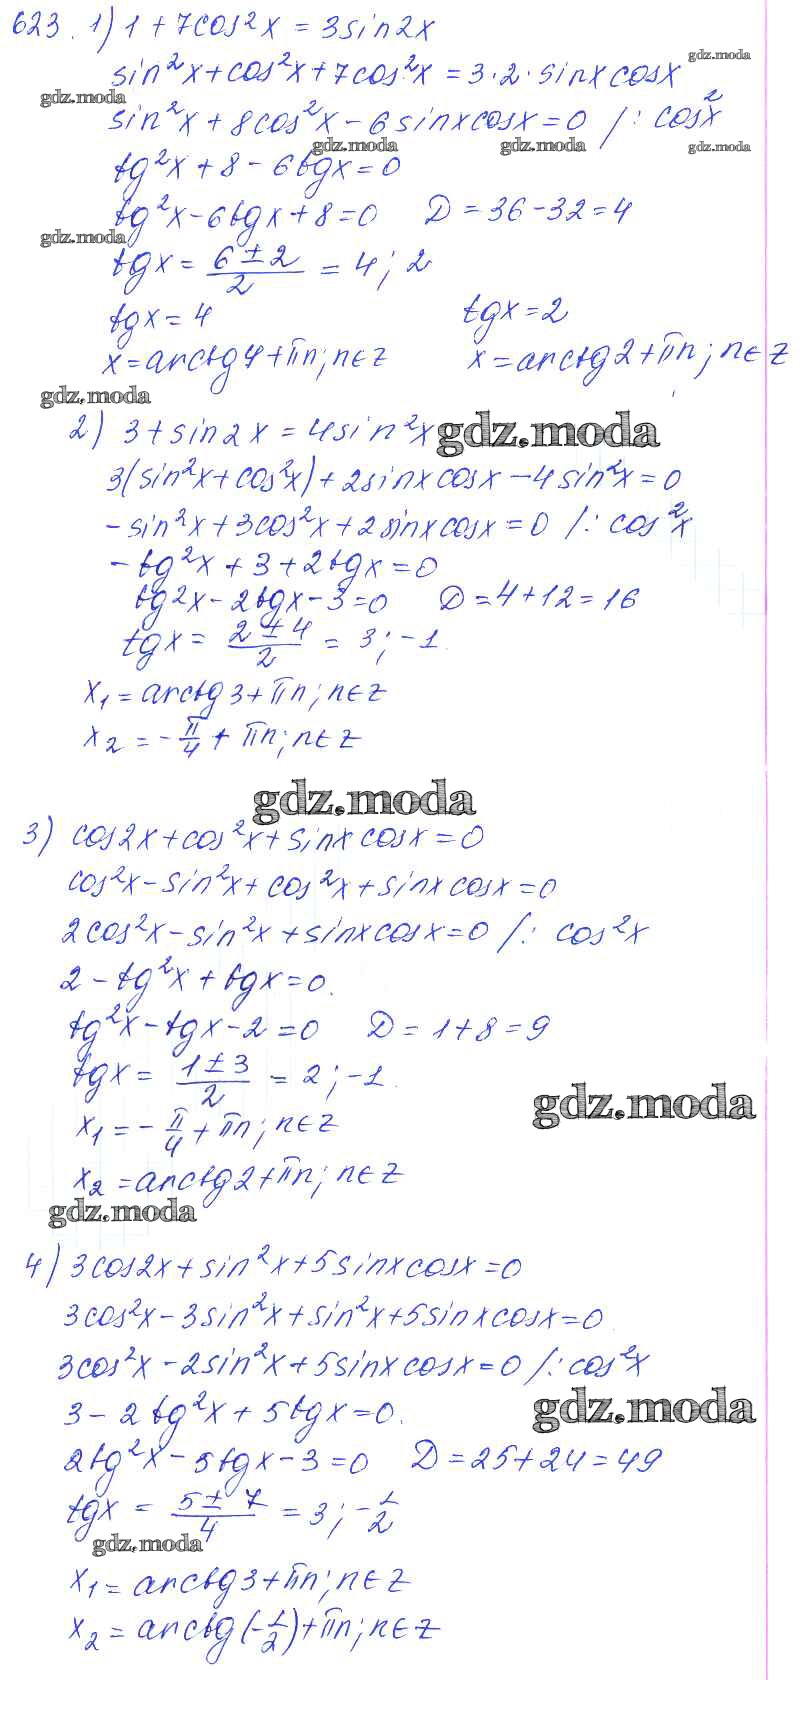 623. 1) 1 + 7cos²x = 3sin2x
gdz.moda
sin²x + cos²x + 7cos²x = 3·2·sinxcosx
gdz.moda
sin²x + 8cos²x - 6sinxcosx = 0 /: cos²x
gdz.moda gdz.moda gdz.moda
tg²x + 8 - 6tgx = 0
tg²x - 6tgx + 8 = 0 D = 36 - 32 = 4
gdz.moda
tgx = (6 ± 2)/2 = 4; 2
tgx = 4 tgx = 2
x = arctg4 + πn; n∈Z x = arctg2 + πn; n∈Z
gdz.moda
2) 3 + sin2x = 4sin²x gdz.moda
3(sin²x + cos²x) + 2sinxcosx - 4sin²x = 0
-sin²x + 3cos²x + 2sinxcosx = 0 /: cos²x
-tg²x + 3 + 2tgx = 0
tg²x - 2tgx - 3 = 0 D = 4 + 12 = 16
tgx = (2 ± 4)/2 = 3; -1.
x₁ = arctg3 + πn; n∈Z
x₂ = -π/4 + πn; n∈Z
gdz.moda
3) cos2x + cos²x + sinxcosx = 0
cos²x - sin²x + cos²x + sinxcosx = 0
2cos²x - sin²x + sinxcosx = 0 /: cos²x
2 - tg²x + tgx = 0.
tg²x - tgx - 2 = 0 D = 1 + 8 = 9
tgx = (1 ± 3)/2 = 2; -1.
gdz.moda
x₁ = -π/4 + πn; n∈Z
x₂ = arctg2 + πn; n∈Z
gdz.moda
4) 3cos2x + sin²x + 5sinxcosx = 0
3cos²x - 3sin²x + sin²x + 5sinxcosx = 0
3cos²x - 2sin²x + 5sinxcosx = 0 /: cos²x
gdz.moda
3 - 2tg²x + 5tgx = 0.
2tg²x - 5tgx - 3 = 0 D = 25 + 24 = 49
tgx = (5 ± 7)/4 = 3; -1/2
gdz.moda
x₁ = arctg3 + πn; n∈Z
x₂ = arctg(-1/2) + πn; n∈Z